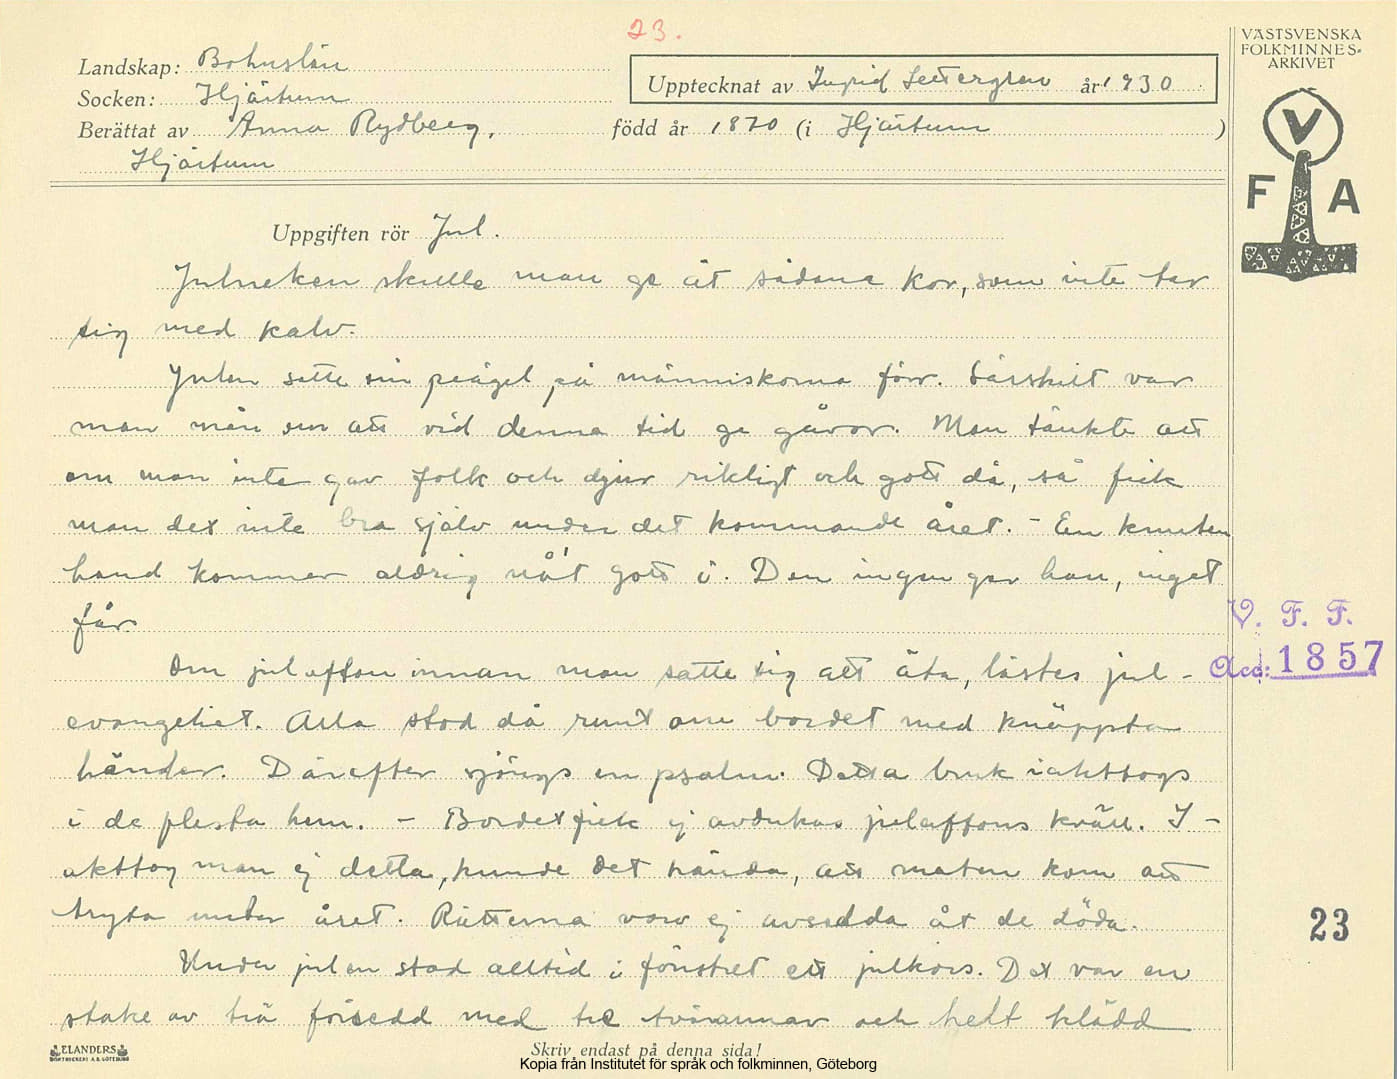 23.
VÄSTSVENSKA
FOLKMINNES-
ARKIVET
Landskap: Bohuslän
Upptecknat av Ingrid Settergren år 1930
Socken: Hjärtum
Berättat av Anna Rydberg, född år 1870 (i Hjärtum )
Hjärtum
V
F A
Uppgiften rör Jul.
Julneken skulle man ge åt sådana kor, som inte tar
sig med kalv.
Julen satte sin prägel på människorna förr. Särskilt var
man mån om att vid denna tid ge gåvor. Man tänkte att
om man inte gav folk och djur rikligt och gott då, så fick
man det inte bra själv under det kommande året. - En knuten
hand kommer aldrig nå't gott i. Den ingen ger han, inget
får.
Om julafton innan man satte sig att äta, lästes jul-
evangeliet. Alla stod då runt om bordet med knäppta
händer. Därefter sjöngs en psalm. Detta bruk iakttogs
i de flesta hem. - Bordet fick ej avdukas julaftons kväll. I-
akttog man ej detta, kunde det hända, att maten kom att
tryta under året. Rätterna voro ej avsedda åt de döda.
Under julen stod alltid i fönstret ett julkors. Det var en
stake av trä försedd med tre tvärarmar och helt klädd
V. F. F.
Acc: 1857
23
ELANDERS
BOKTRYCKERI A.B. GÖTEBORG
Skriv endast på denna sida!
Kopia från Institutet för språk och folkminnen, Göteborg